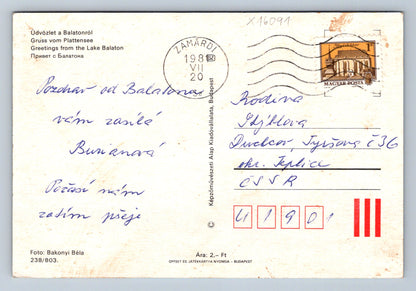 Üdvözlet a Balatonról
Gruss vom Plattensee
Greetings from the Lake Balaton
Привет с Балатона
X16091
ZAMÁRDI
198
VII
20
MAGYAR POSTA
Pozdrav od Balatonu
vám zasílá
Burianová
Počasí nám
zatím přeje
Képzőművészeti Alap Kiadóvállalata, Budapest
Rodina
Duchcov, Tyršova č 36
okr. Teplice
ČSSR
41901
Foto: Bakonyi Béla
238/803.
Ára: 2,- Ft
OFFSET ÉS JÁTÉKKÁRTYA NYOMDA - BUDAPEST